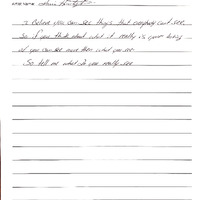 I Believe you can see things that everybody can't see.
So if you think about what it really is your doing
if you can see more then what you see
So tell me what do you really see.